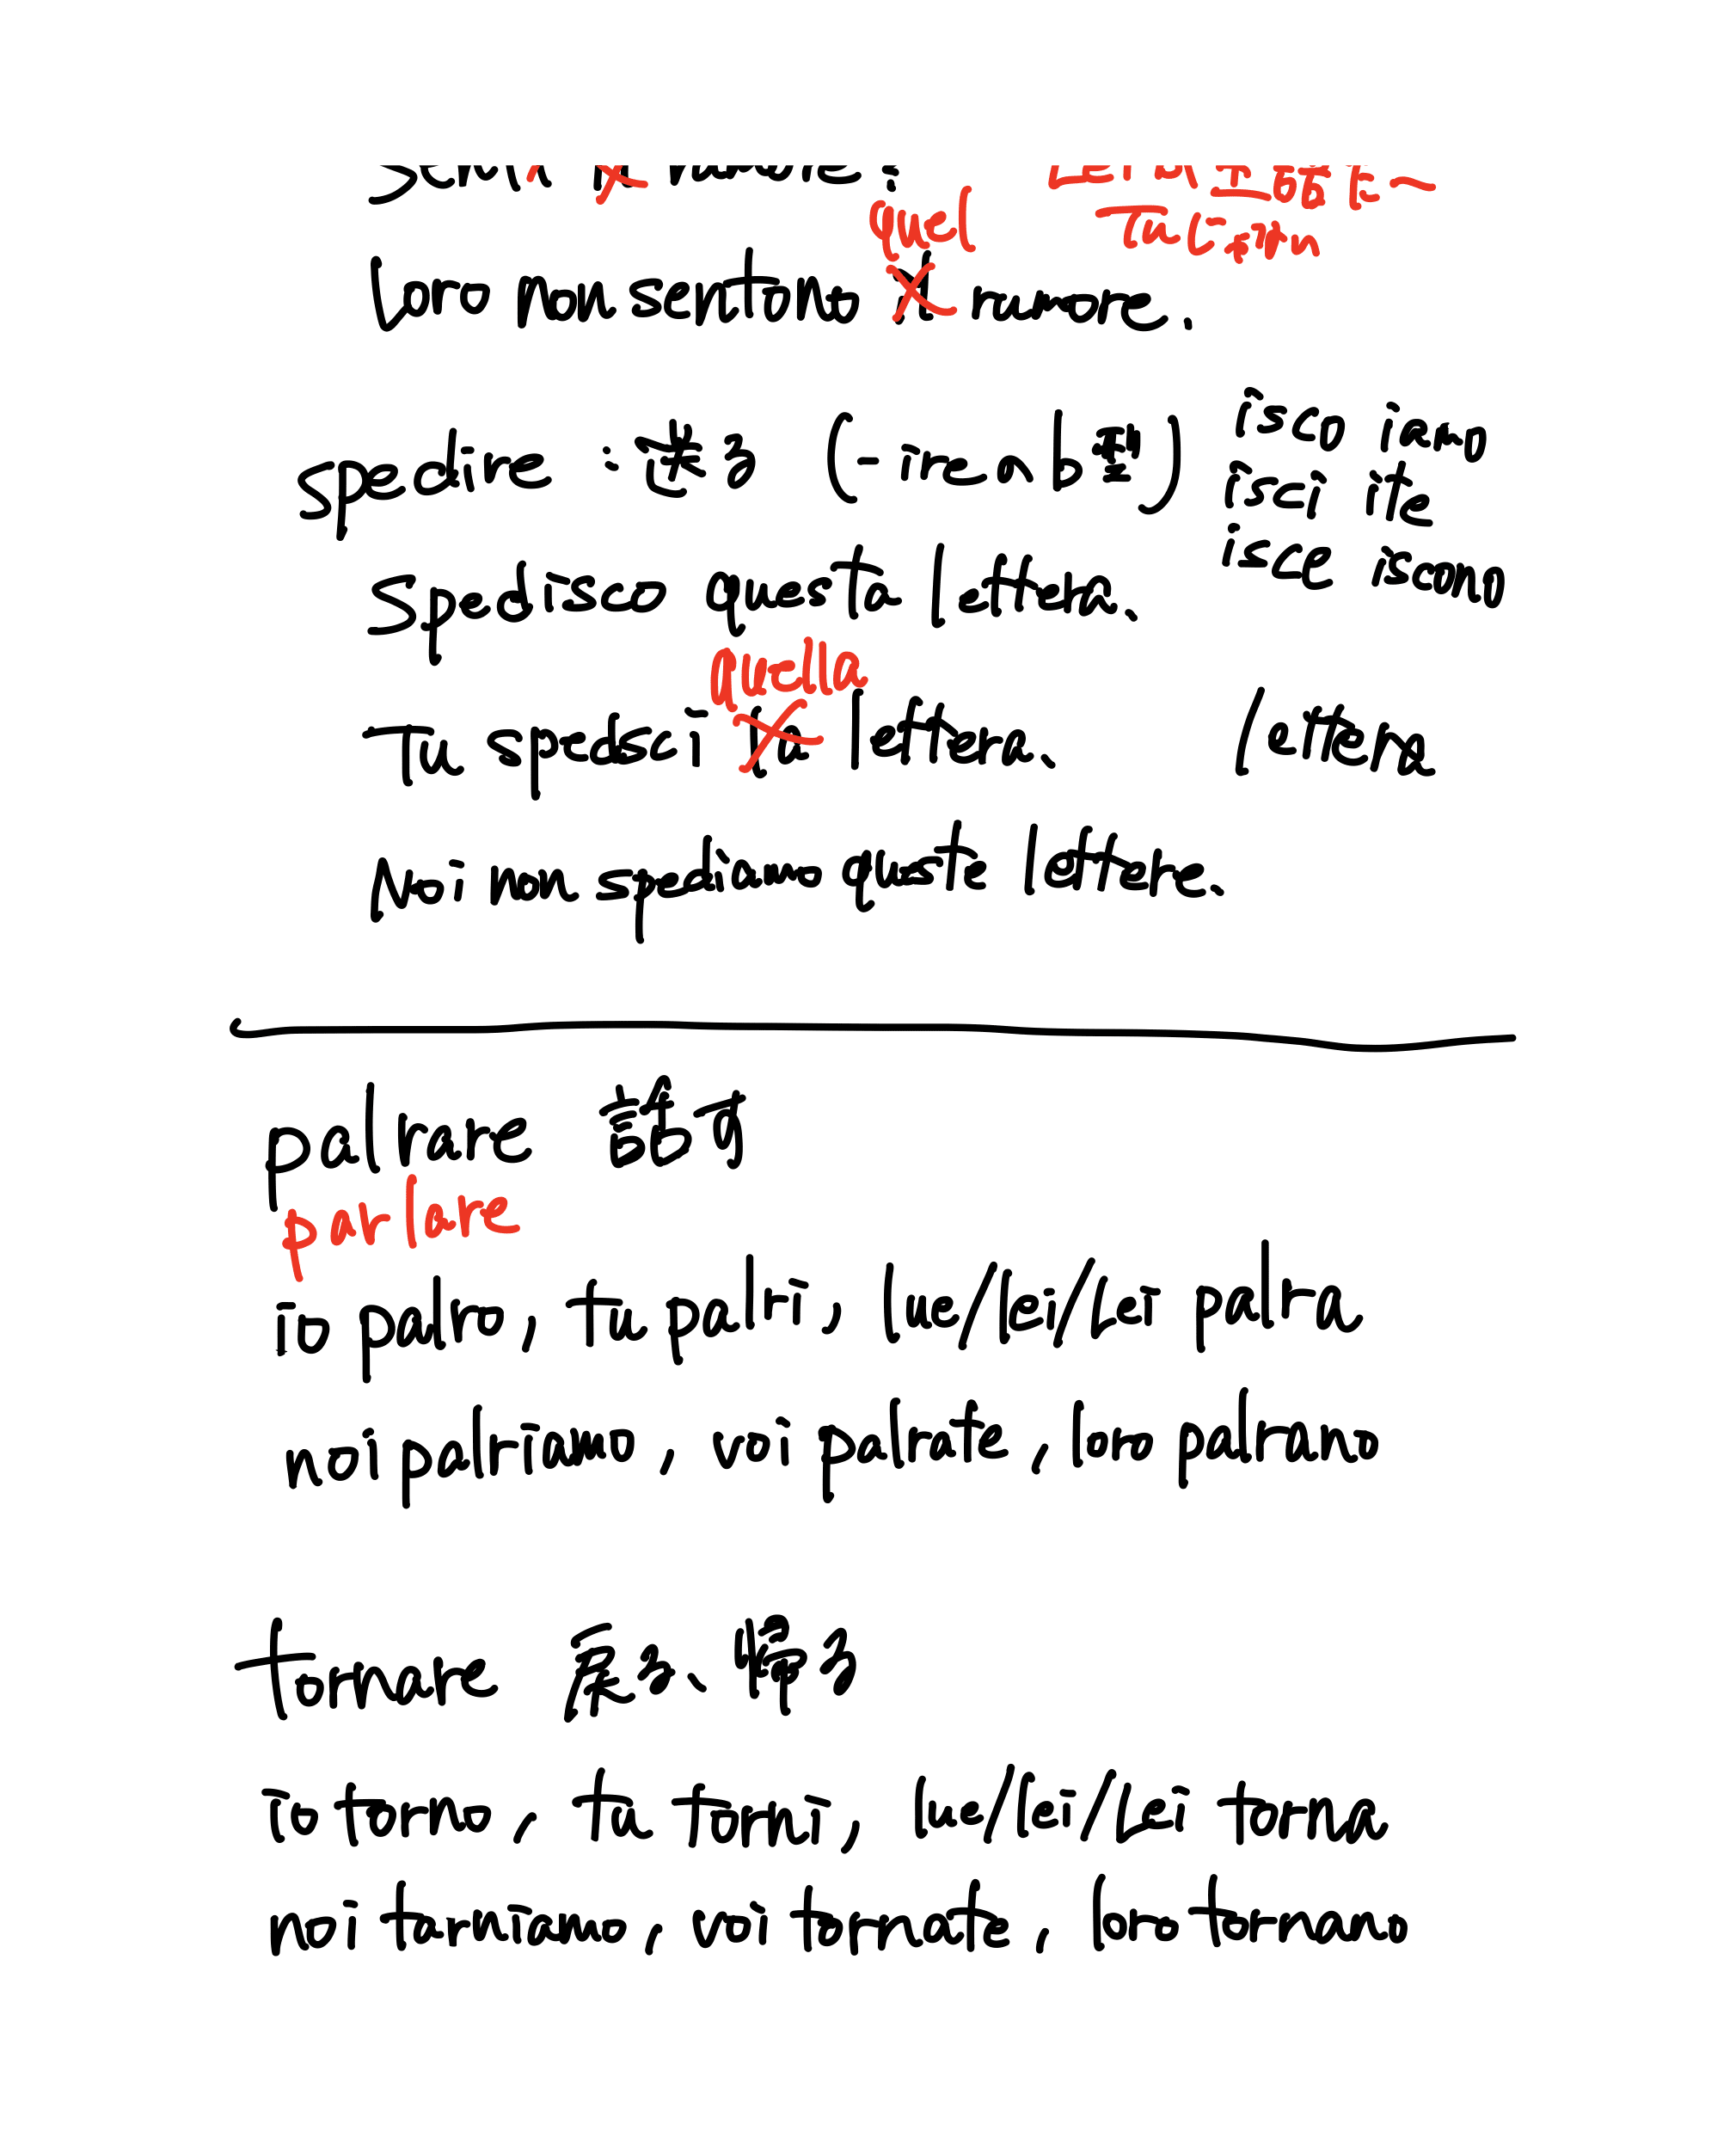 quel
loro non sentono il rumore.
spedire : 送る (-ireのb型) isco iamo
isci ite
isce iscono
Spedisco questa lettera.
quella
Tu spedisci la lettera. lettera
Noi non spediamo queste lettere.
palrare 話す
parlare
io palro, tu palri, lue/lei/Lei palra
noi palriamo, voi palrate, loro palrano
tornare 戻る、帰る
io torno, tu torni, lue/lei/Lei torna
noi torniamo, voi tornate, loro tornano